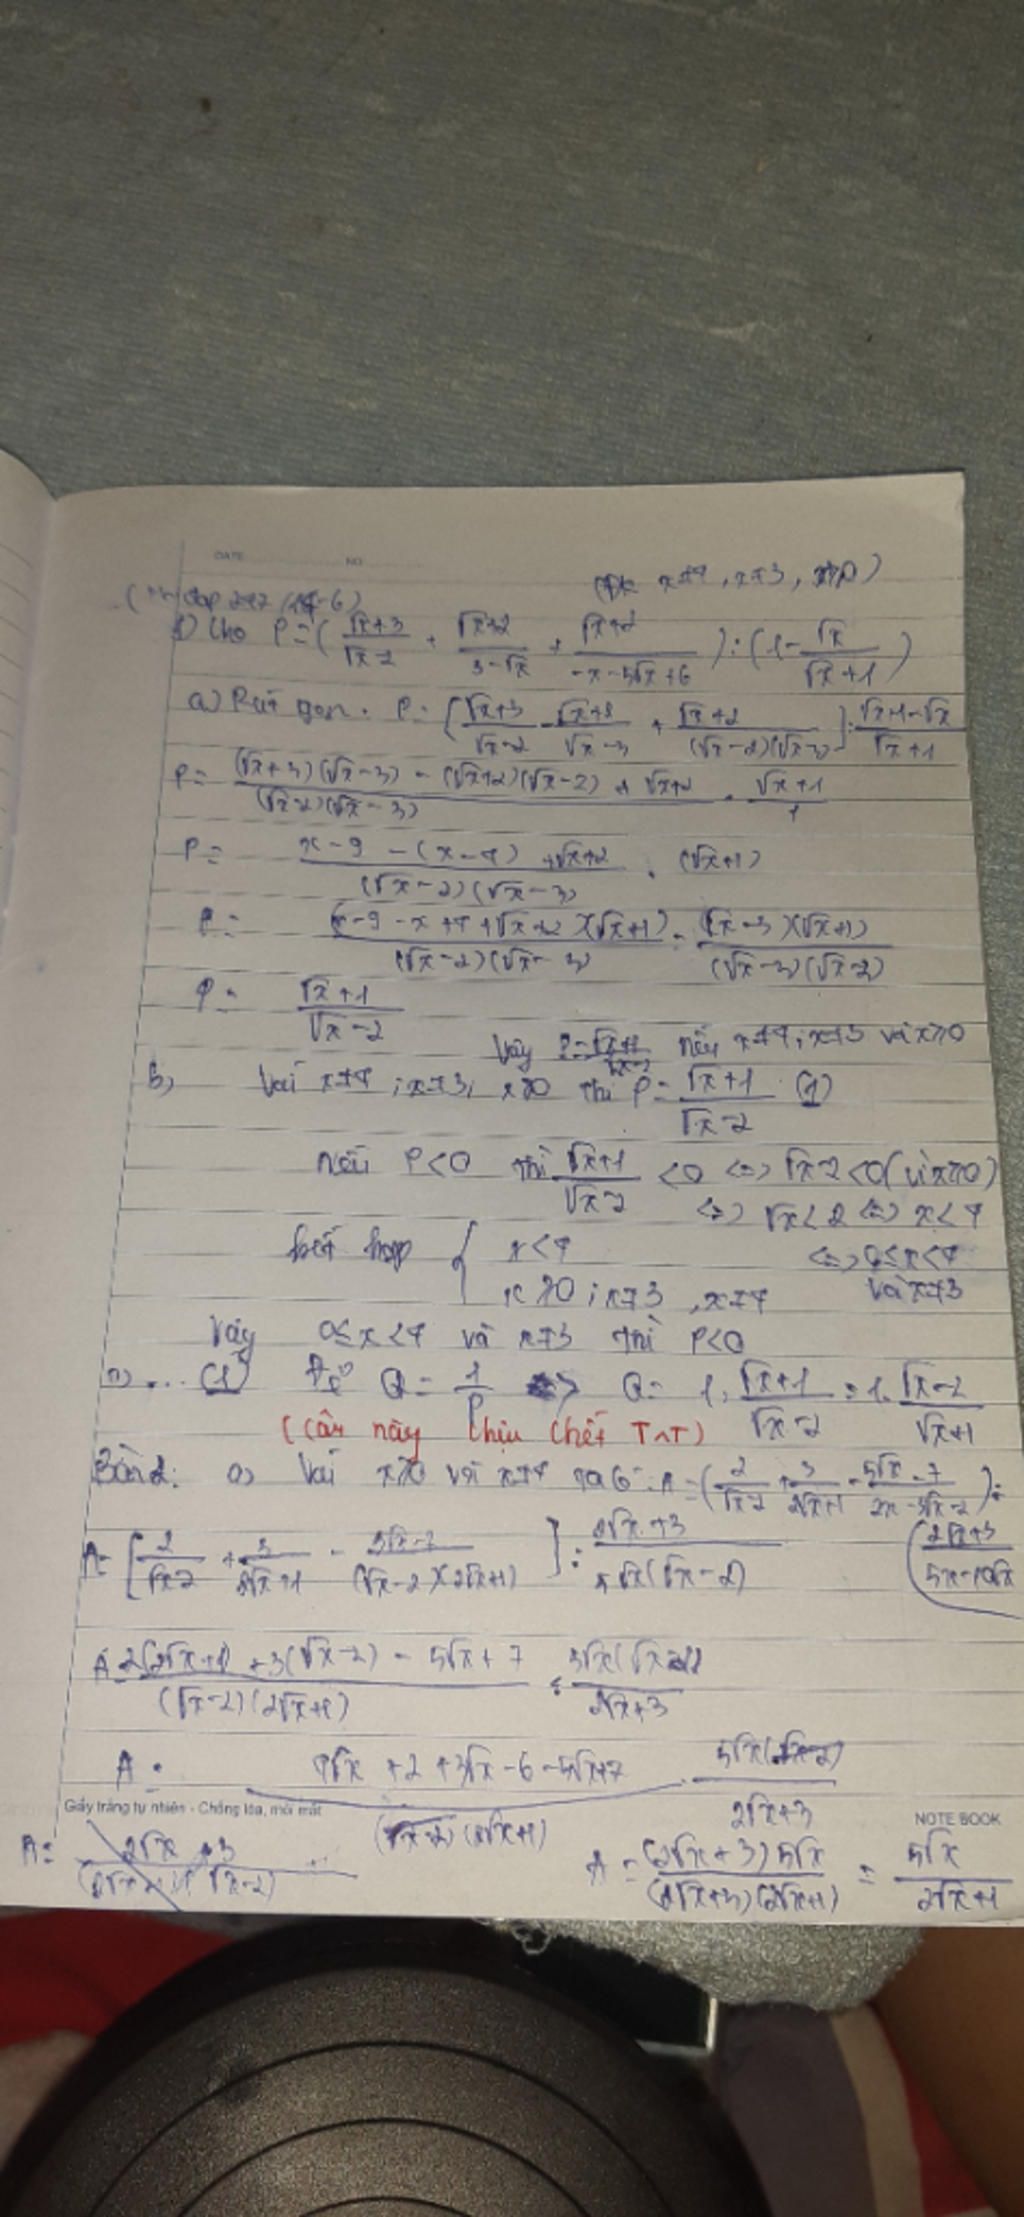 DATE NO
(Đk x≠4, x≠3, x≥0)
1) Cho P = (√x+3/√x-2 + √x+2/3-√x + √x+2/x-5√x+6) : (1 - √x/√x+1)
a) Rút gọn. P = [√x+3/√x-2 - √x+2/√x-3 + √x+2/(√x-2)(√x-3)] : √x+1-√x/√x+1
P = (√x+3)(√x-3) - (√x+2)(√x-2) + √x+2/(√x-2)(√x-3) . √x+1/1
P = x-9-(x-4)+√x+2/(√x-2)(√x-3) . (√x+1)
P = (x-9-x+4+√x+2)(√x+1)/(√x-2)(√x-3) = (√x-3)(√x+1)/(√x-3)(√x-2)
P = √x+1/√x-2
Vậy P = √x+1/√x-2 nếu x≠4; x≠3 và x≥0
b) Với x≠4; x≠3; x≥0 thì P = √x+1/√x-2 (1)
Nếu P<0 thì √x+1/√x-2 <0 <=> √x-2<0 (vì x≥0)
<=> √x<2 <=> x<4
kết hợp { x<4 <=> 0≤x<4
x≥0; x≠3, x≠4 và x≠3
Vậy 0≤x<4 và x≠3 thì P<0
... (1) Để Q = 1/P => Q = 1 : √x+1/√x-2 = 1. √x-2/√x+1
(Câu này chịu chết T^T)
Bài 2: a) Với x≥0 và x≠4 ta có: A = (2/√x-2 + 3/2√x+1 - 5√x-7/2x-3√x-2) :
(2√x+3/5x-10√x
A = [2/√x-2 + 3/2√x+1 - 5√x-7/(√x-2)(2√x+1)] : 2√x+3/5√x(√x-2)
A = 2(2√x+1)+3(√x-2)-5√x+7/(√x-2)(2√x+1) . 5√x(√x-2)/2√x+3
A = 4√x+2+3√x-6-5√x+7/(√x-2)(2√x+1) . 5√x(√x-2)/2√x+3
Giấy trắng tự nhiên - Chống lóa, mỏi mắt NOTE BOOK
A = (2√x+3)5√x/(2√x+3)(2√x+1) = 5√x/2√x+1